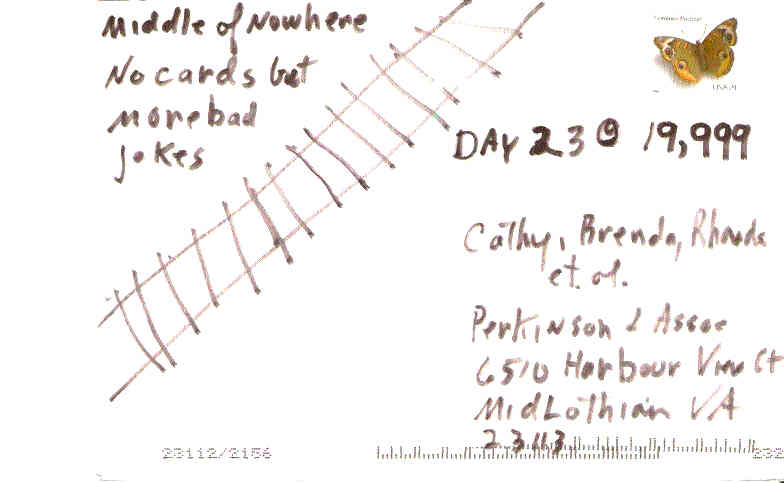 Middle of Nowhere
No cards but
more bad
jokes
DAY 23 @ 19,999
Cathy, Brenda, Rhonda
et. al.
Perkinson & Assoc
6510 Harbour View Ct
Midlothian VA
23113
23112/2156
232